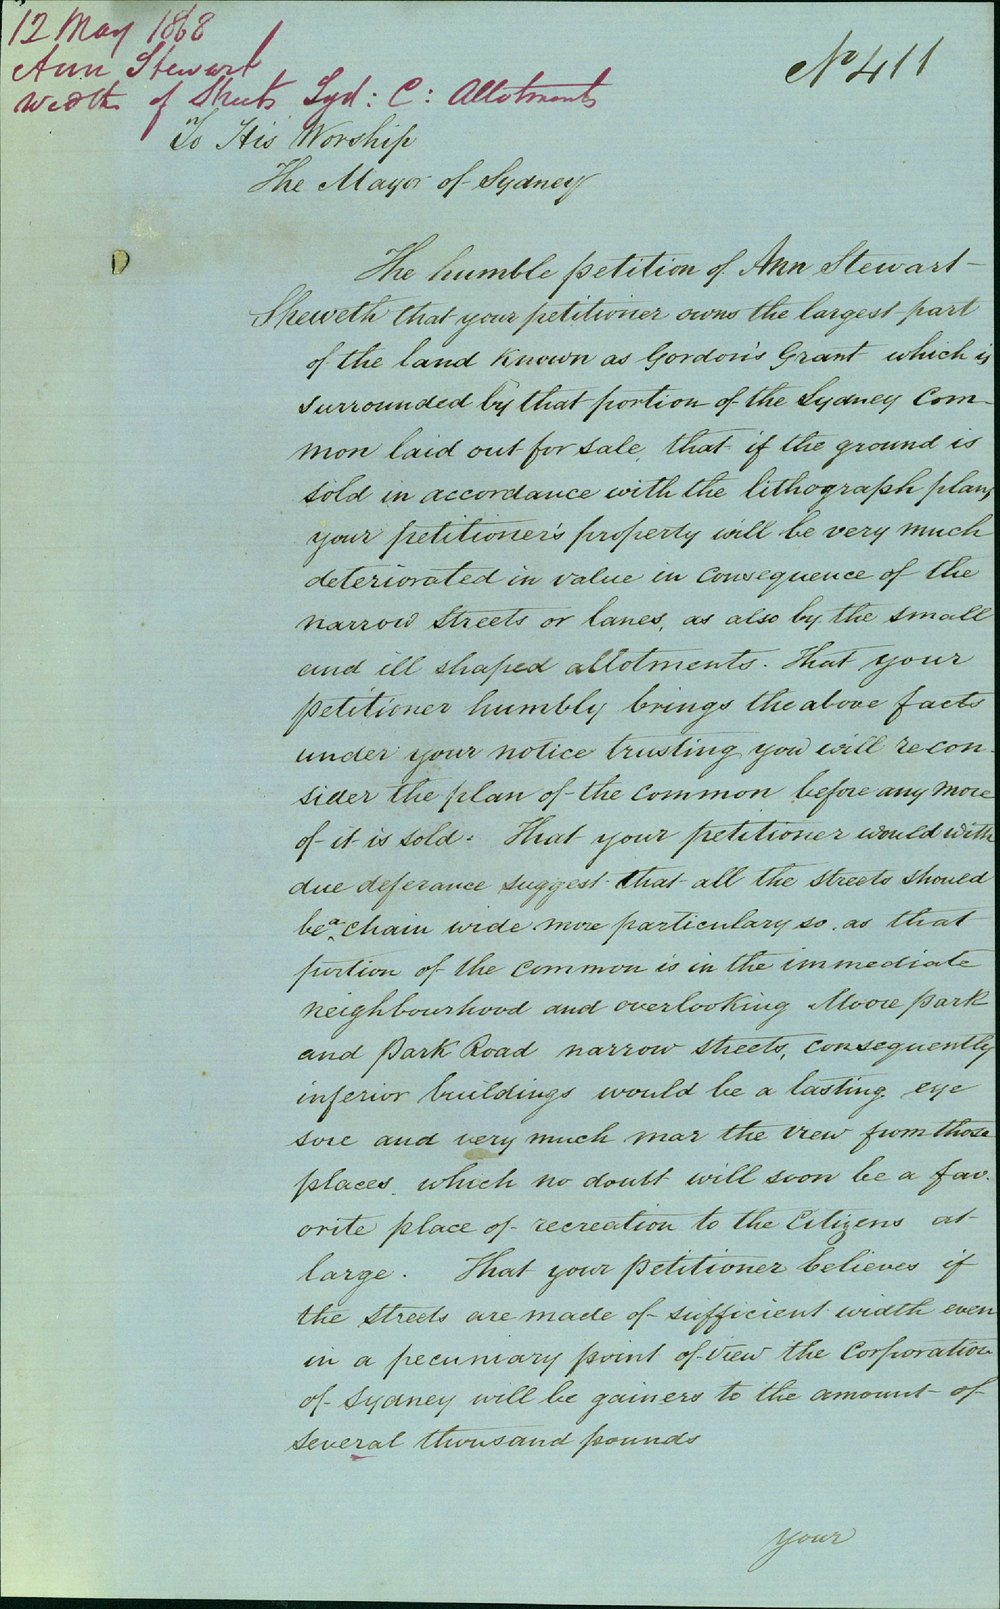 12 May 1868
Ann Stewart
Width of Streets Syd: C: Allotments
No 411
To His Worship
The Mayor of Sydney
The humble petition of Ann Stewart
Sheweth that your petitioner owns the largest part
of the land known as Gordon's Grant which is
surrounded by that portion of the Sydney Com-
mon laid out for sale, that if the ground is
sold in accordance with the lithograph plans
your petitioner's property will be very much
deteriorated in value in consequence of the
narrow streets or lanes, as also by the small
and ill shaped allotments. That your
petitioner humbly brings the above facts
under your notice trusting you will recon-
sider the plan of the common before any more
of it is sold. That your petitioner would with
due deferance suggest that all the streets should
be a chain wide more particulary so, as that
portion of the common is in the immediate
neighbourhood and overlooking Moore Park
and Park Road narrow streets, consequently
inferior buildings would be a lasting eye
sore and very much mar the view from those
places, which no doubt will soon be a fav-
orite place of recreation to the Citizens at
large. That your petitioner believes if
the streets are made of sufficient width even
in a pecuniary point of view the Corporation
of Sydney will be gainers to the amount of
several thousand pounds
your